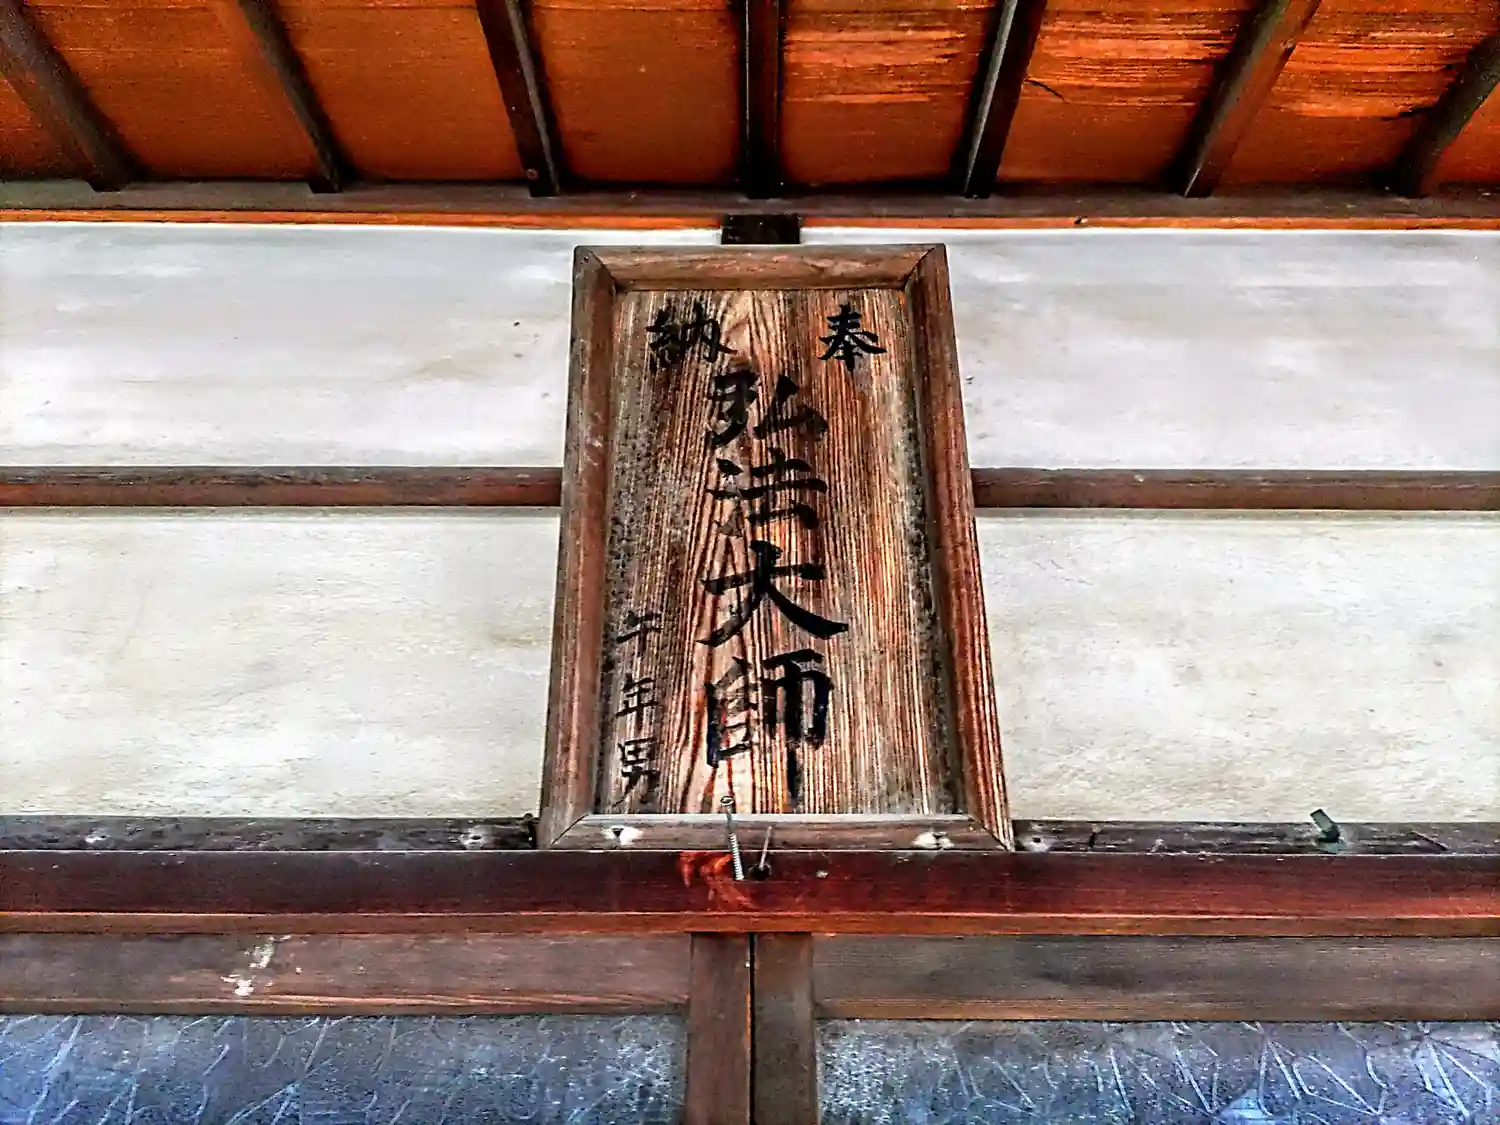 奉納
弘法大師
午年男